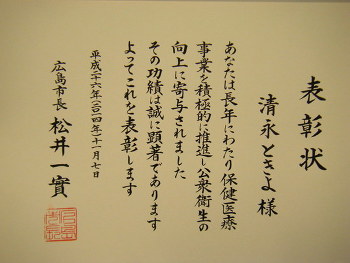 表彰状
清永ときよ様
あなたは長年にわたり保健医療
事業を積極的に推進し公衆衛生の
向上に寄与されました
その功績は誠に顕著であります
よってこれを表彰します
平成二十六年(二〇一四年)十一月七日
広島市長 松井一實